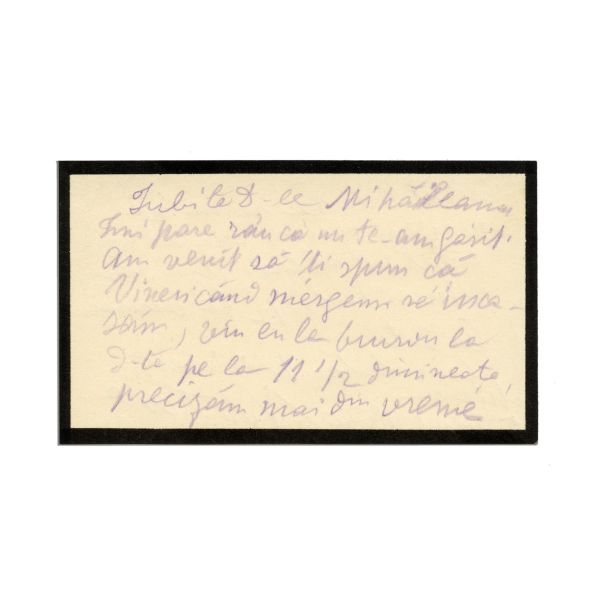 Iubite D-le Mihăileanu
Îmi pare rău că nu te-am găsit.
Am venit să 'ți spun că
Vineri când mergem să înca-
săm, viu eu la birou la
d-ta pe la 11 1/2 dimineața,
precizăm mai din vreme